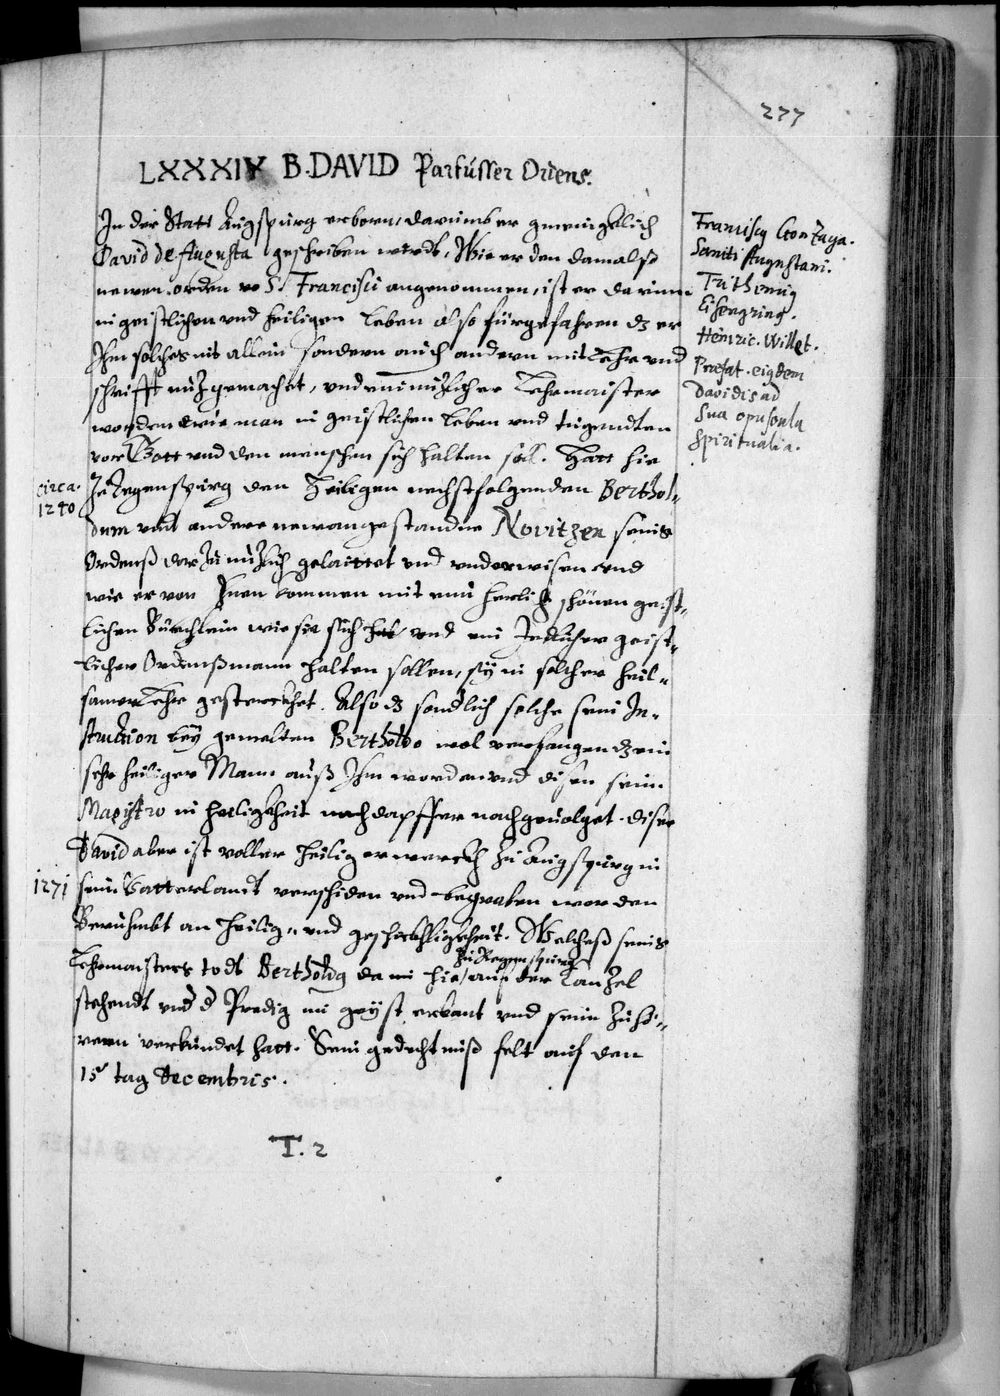 277
LXXXIV B. DAVID Parfüsser Ordens.
In der Statt Augspurg erborn, darumb er gmeingklich
David de Augusta geschriben wirdt, Wie er den damalß
newen orden S. Francisci angenommen, ist er darinn
in geistlichen und heiligen Leben also fürgefahren dz er
Ihm solches nit allein sondern auch andern mit Lehr und
schrifft nuz gemachet, und ein nuzlicher Lehrmaister
worden wie man in geistlichen Leben und tugendten
vor Gott und den menschen sich halten soll. Hatt hie
Zu Regenspurg den Heiligen nechstfolgenden Berthol-
dum und andere newangestandne Novitzen seines
Ordenß dar Zu nuzlich gelaittet und underwisen und
wie er von Inen kommen mit eim herlich schönen geist-
lichen Büechlein wie sie sich und ein Jedlicher geist-
licher Ordenßmann halten sollen, sÿ in solcher heil-
samer Lehr gesterckhet. Also dz sondlich solche sein In-
struction beÿ gemelten Bertholdo wol verfangen dz ein
sehr heiliger Mann auß Ihm worden und disen seim
Magistro in heiligkheit nach dapffer nachgevolget. diser
David aber ist voller heiliger werckh Zu Augspurg in
seim Vatterlandt verschiden und begraben worden
Berüehmbt an heilig- und geschickhligkheit. Welcheß seines
Lehrmaisters todt Bertholdus da in hie zu Regenspurg auf der Canzel
stehendt und d Predig im geÿst erkant und seine Zuhö-
rern verkündet hatt. Sein gedechtnuß felt auf den
15 tag Decembris.
T. 2
circa.
1240
1271
Franciscus Gonzaga.
Sancti Augustani.
Trithemius
Eisengrinus.
Heinric. Willot.
Praefat. eiusdem
Davidis ad
sua opuscula
spiritualia.